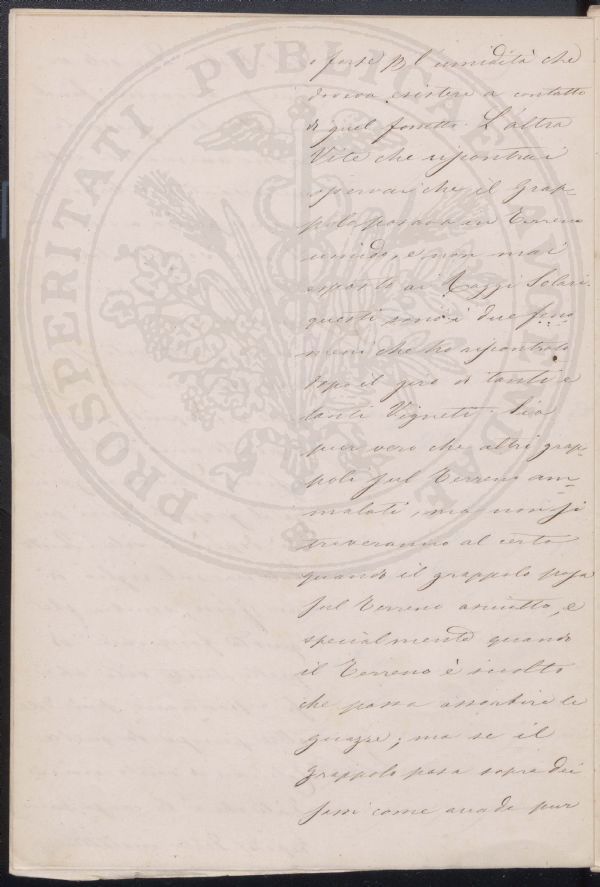 o forse p l'umidità che
doveva esistere a contatto
di quel fossetto. L'altra
Vite che riscontrai
osservai che il Grap-
polo posava su Terreno
umido, e non mai
esposto ai Raggi Solari.
questi sono i due feno
meni che ho riscontrato
dopo il giro di tanti e
tanti Vigneti. Sia
pur vero che altri grap-
poli sul Terreno am-
malati, ma non si
troveranno al certo
quando il grappolo posa
sul Terreno asciutto, e
specialmente quando
il Terreno è sciolto
che possa assorbire le
guazze; ma se il
grappolo posa sopra dei
sassi come accade pur
PROSPERITATI PVBLICAE AVGENDAE